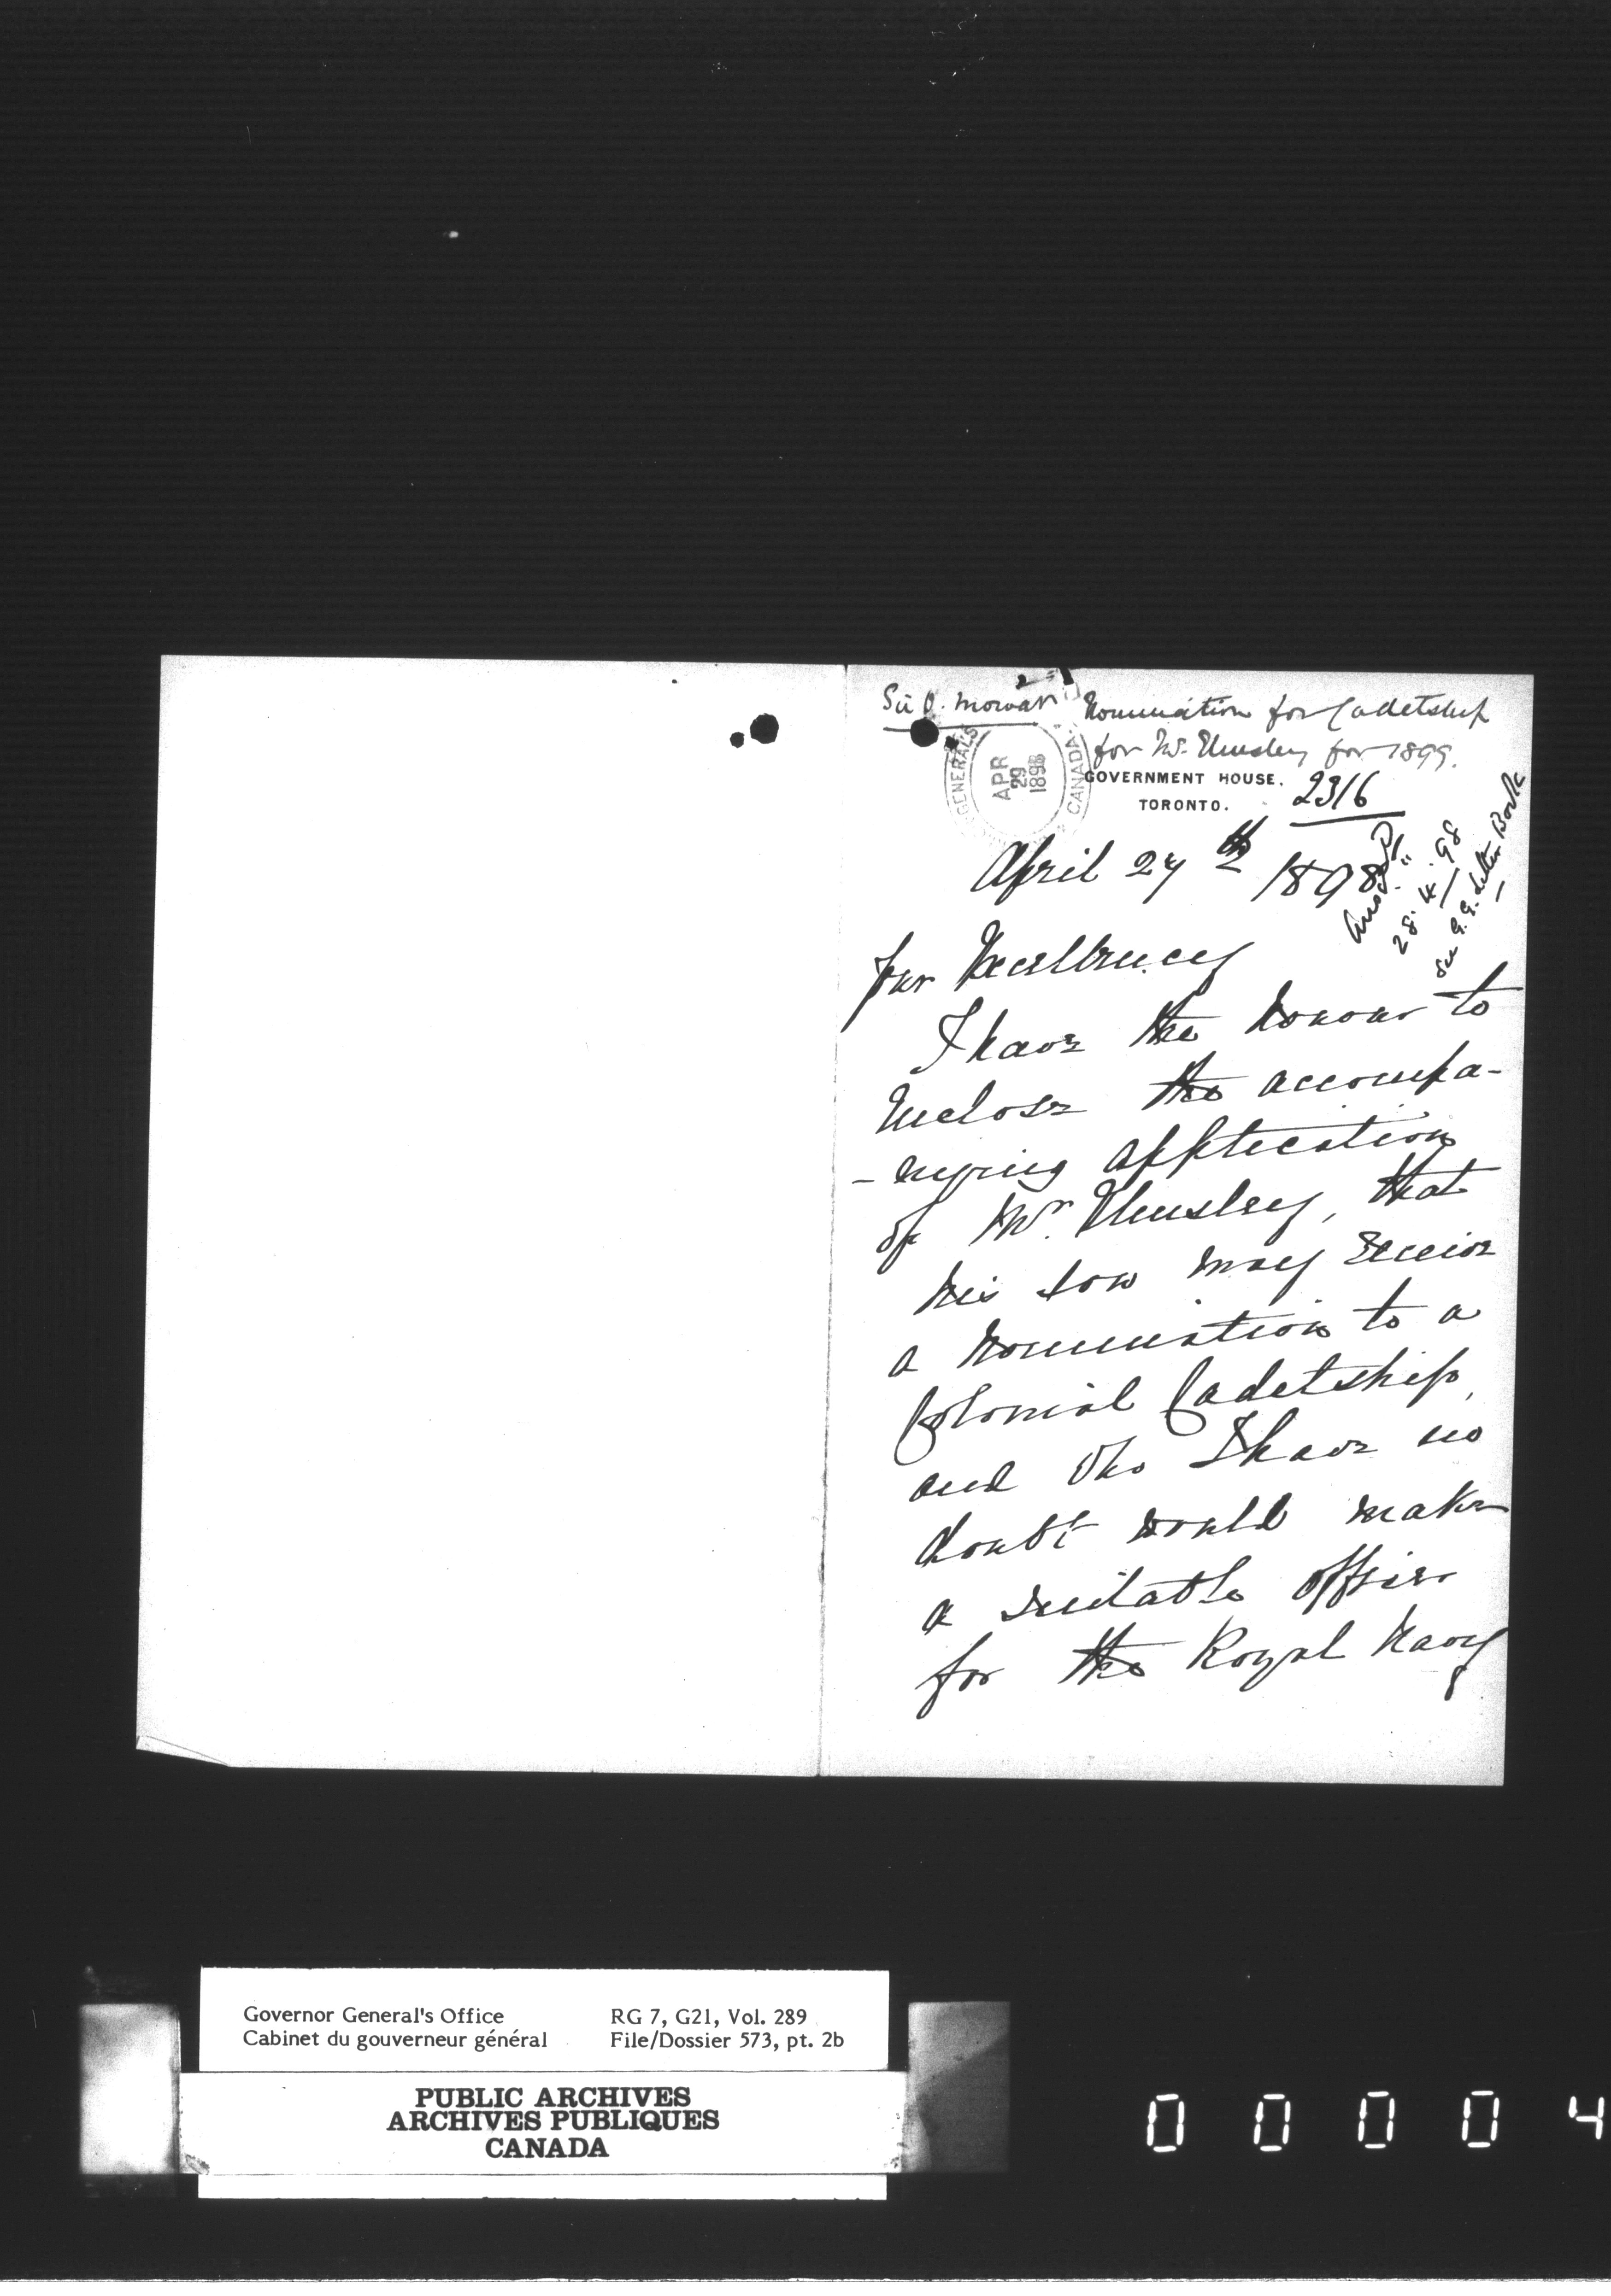 Sir O. Mowat
Nomination for Cadetship
for Mr. Elmsley for 1899.
GENERAL'S
CANADA
APR
29
1898
GOVERNMENT HOUSE.
TORONTO.
2316
Ansd
28.4.98
See G.G. Letter Book
April 27th 1898
Your Excellency
I have the honour to
enclose the accompa-
-nying application
of Mr. Elmsley, that
his son may receive
a nomination to a
Colonial Cadetship,
and who I have no
doubt would make
a suitable officer
for the Royal Navy
Governor General's Office
Cabinet du gouverneur général
RG 7, G21, Vol. 289
File/Dossier 573, pt. 2b
PUBLIC ARCHIVES
ARCHIVES PUBLIQUES
CANADA
0 0 0 0 4